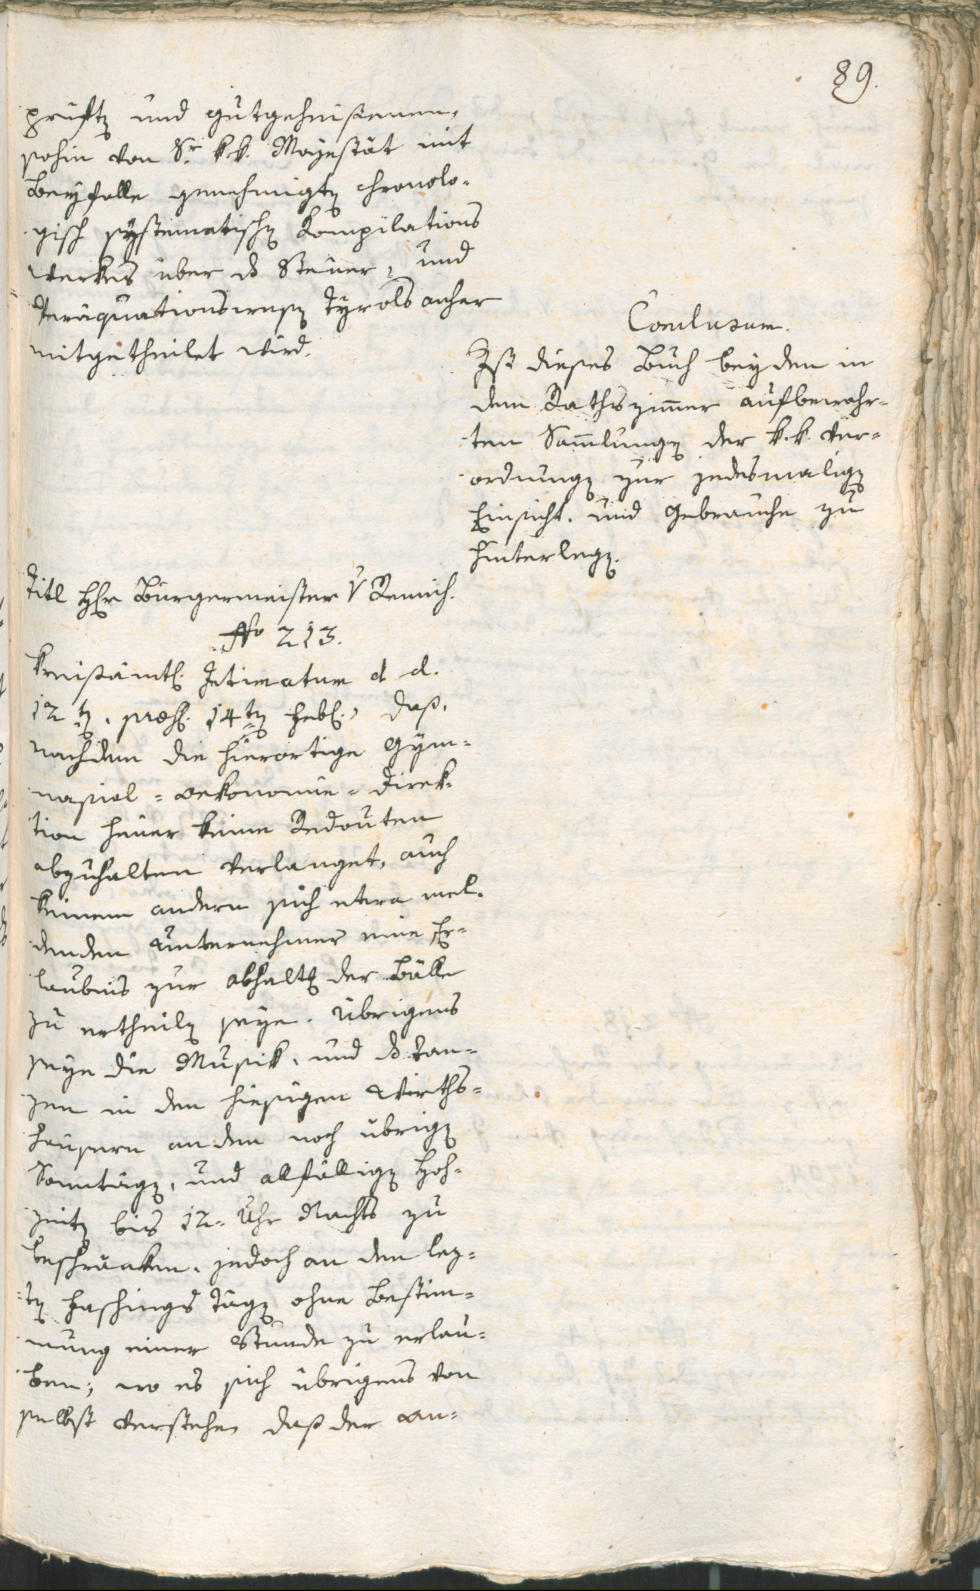 89.
prüften und gutgeheissenen,
sohin von Sr. k.k. Mayestät mit
Beyfalle genehmigten chronolo-
gisch systematischen Kompilations
Werkes über das Steuer, und
Peräquationswesen Tyrols anher
mitgetheilet wird.
Conclusum.
Ist dieses Buch bey den in
dem Rathszimmer aufbewahr-
ten Sammlungen der k.k. Ver-
ordnungen zur jedesmaligen
Einsicht, und Gebrauche zu
hinterlegen.
Titl Herr Bürgermeister v Remich.
No 213.
Kreisämtl. Intimatum d. d.
12ten, praes. 14ten Hebl., daß,
nachdem die hierortige Gym-
nasial-Oekonomie-Direk-
tion heuer keine Redouten
abzuhalten verlanget, auch
keinem andern sich etwa mel-
denden Unternehmer eine Er-
laubnis zur Abhaltung der Bälle
zu ertheilen seye. Übrigens
seye die Musik, und das Tan-
zen in den hiesigen Wirths-
häusern an den noch übrigen
Sonntägen, und allfälligen Hoch-
zeiten bis 12 Uhr Nachts zu
beschränken, jedoch an den lez-
ten Faschings Tägen ohne Bestim-
mung einer Stunde zu erlau-
ben; wo es sich übrigens von
selbst verstehe, daß der an-